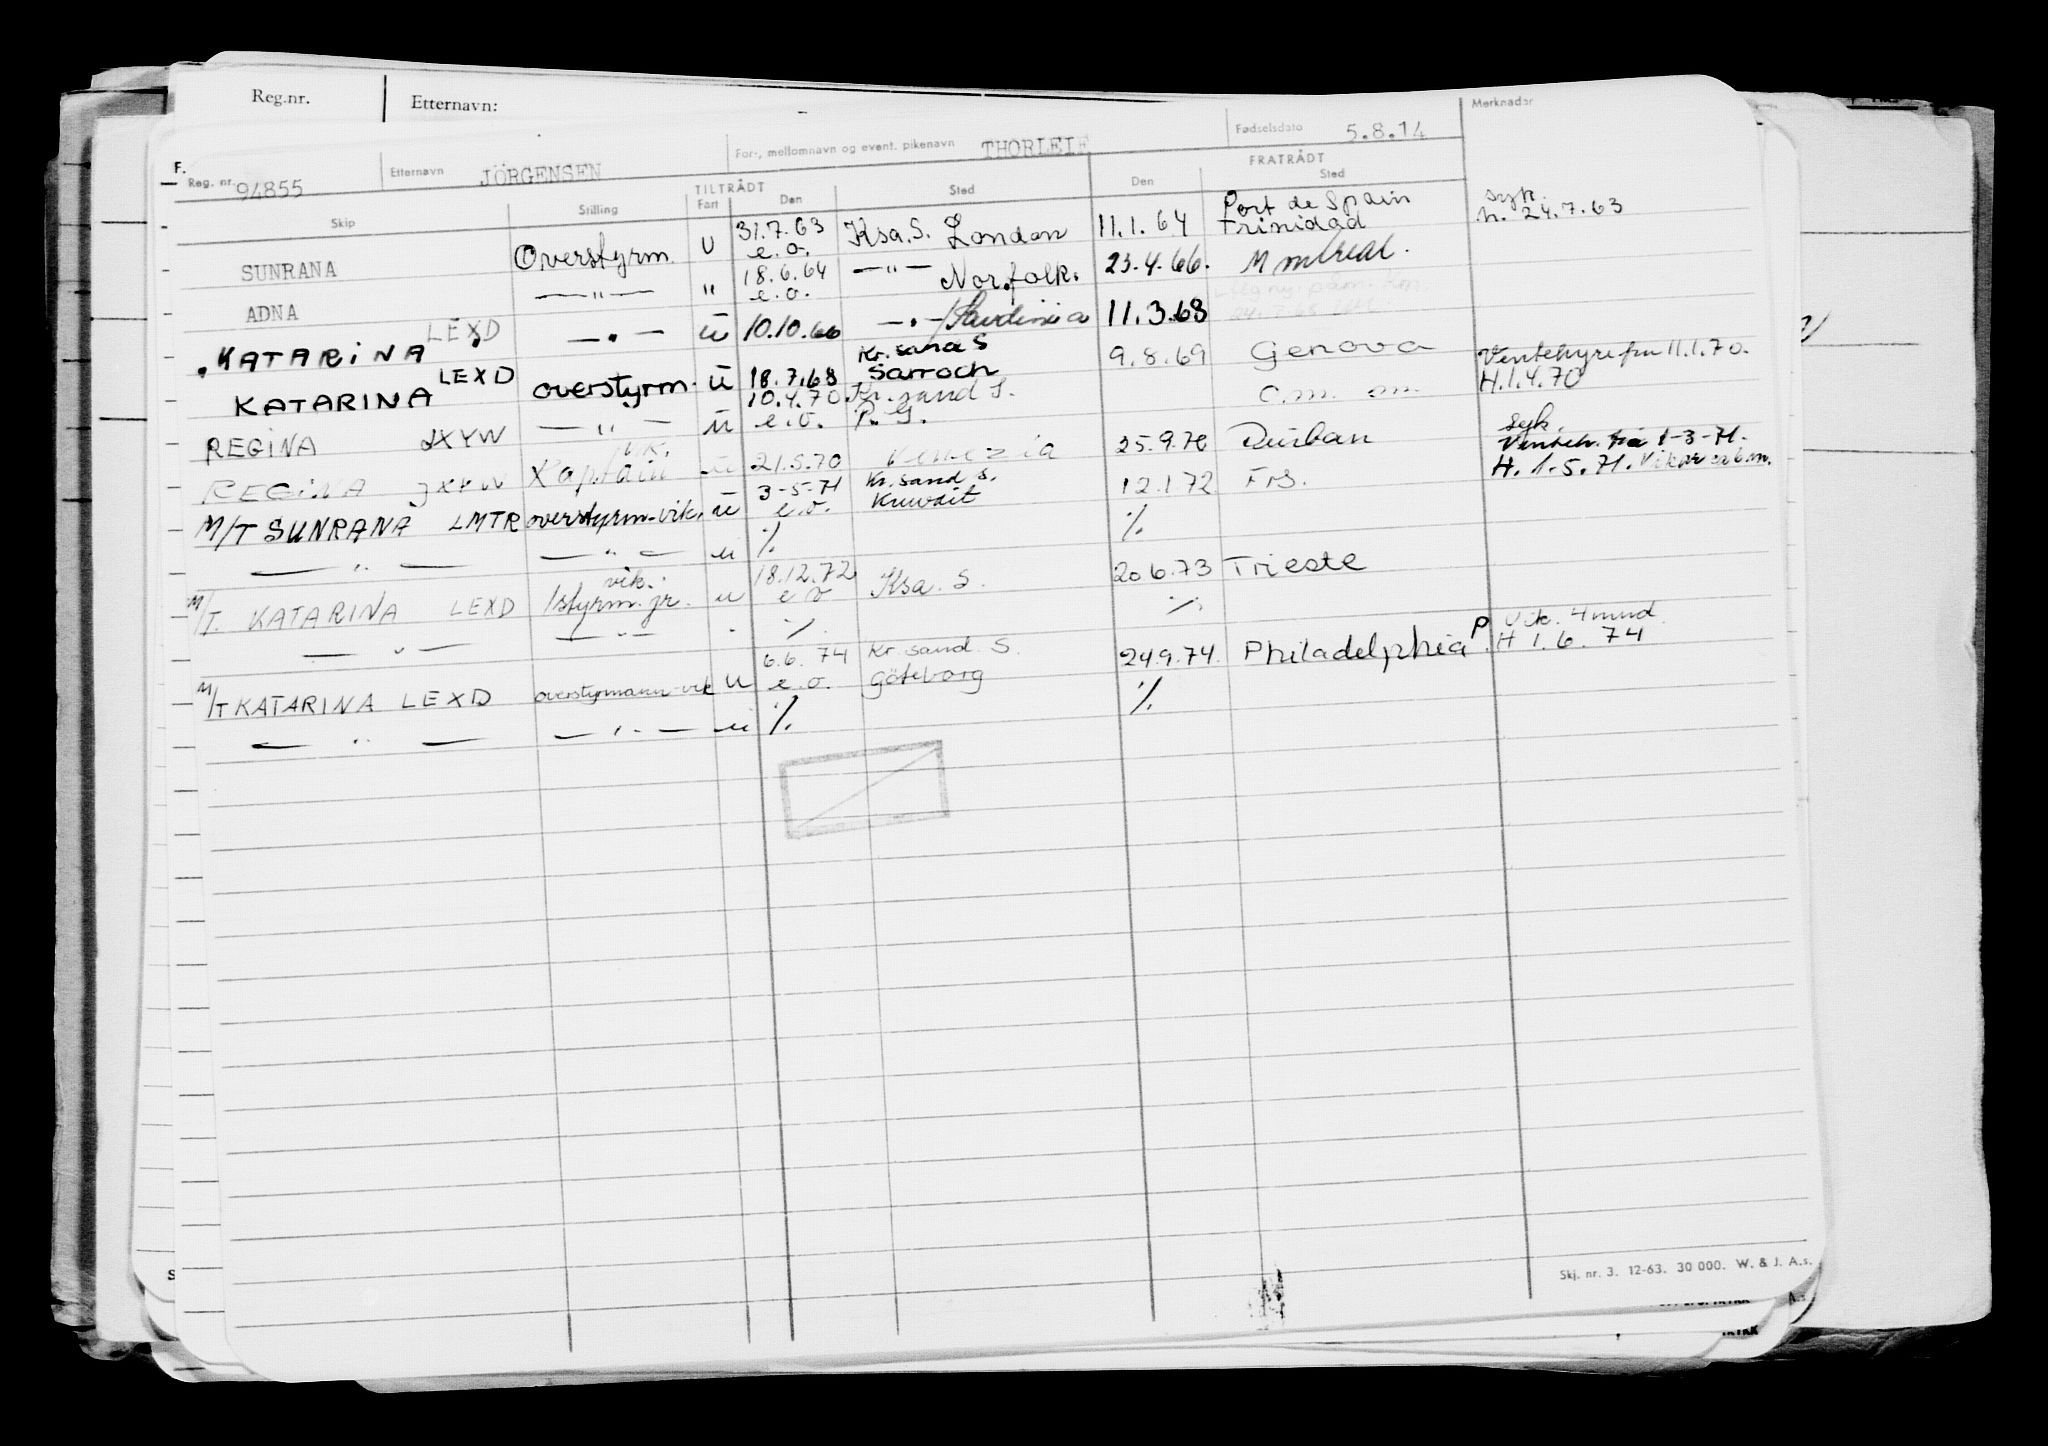 Reg.nr. Etternavn:
F.
Reg. nr. 94855 Etternavn JÖRGENSEN For-, mellomnavn og event. pikenavn THORLEIF Fødselsdato 5.8.14 Merknader
TILTRÅDT FRATRÅDT
Skip Stilling Fart Den Sted Den Sted
SUNRANA Overstyrm. U 31.7.63 e.o. Ksa. S. London 11.1.64 Port de Spain Trinidad syk. h. 24.7.63
ADNA —"— " 18.6.64 e.o. —"— Norfolk. 23.4.66. Montreal.
KATARINA LEXD —"— u 10.10.66 —"— / Sardinia 11.3.68
KATARINA LEXD overstyrm. u 18.7.68 Kr.sand S Sarroch 9.8.69 Genova Ventehyre fra 11.1.70. H.1.4.70
REGINA JXYW —"— u 10.4.70 e.o. Kr.sand S. P.G. o.m. om.
REGINA JXYW Kaptain vik. u 21.5.70 Venezia 25.9.70 Durban syk. Venteh. fra 1-3-71.
M/T SUNRANA LMTR overstyrm-vik. u 3-5-71 e.o. Kr.sand S. Kuwait 12.1.72 Frs. H. 1.5.71.
—"— —"— u % %
M/T. KATARINA LEXD 1styrm. jr. vik. u 18.12.72 e o Ksa. S. 20 6.73 Trieste
—"— —"— " % %
M/T KATARINA LEXD overstyrmann-vik U 6.6.74 e.o. Kr.sand. S. Göteborg 24.9.74. Philadelphia P. Vik. 4 mnd. H 1.6.74
—"— —"— u % %
Skj. nr. 3. 12-63. 30 000. W. & J. A.s.